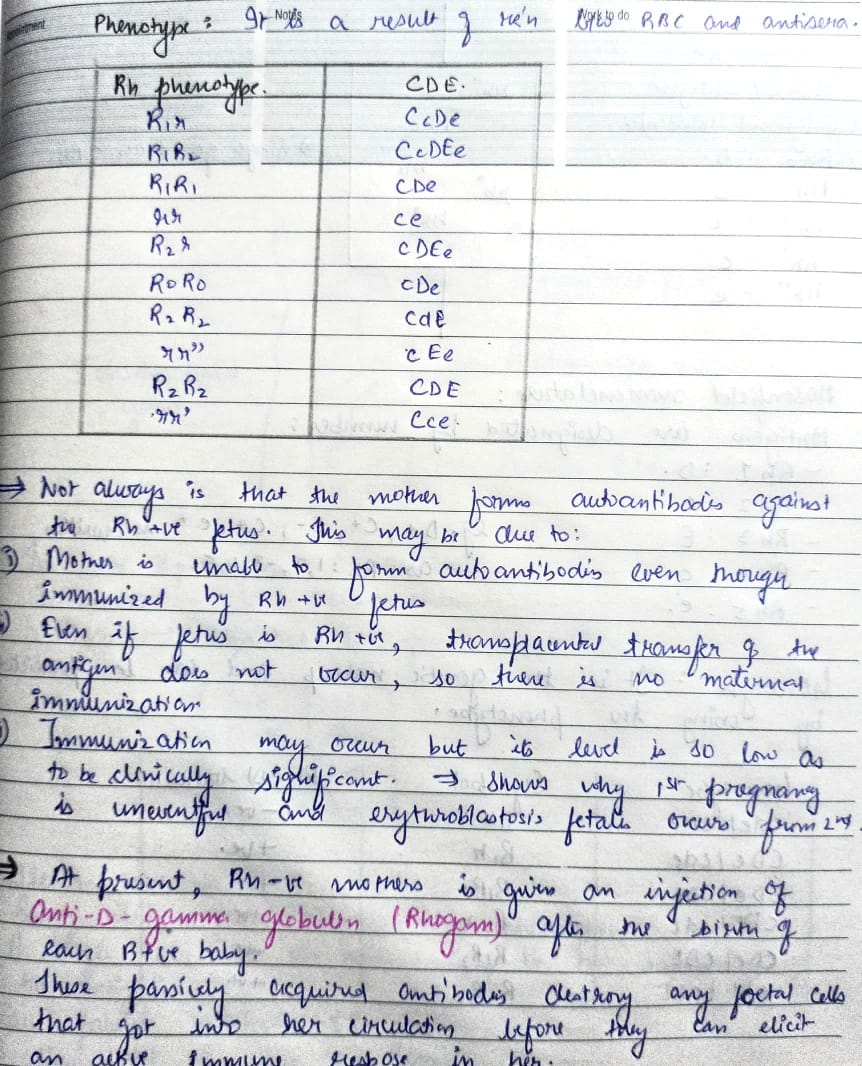 Phenotype : It is a result of rx'n b/w RBC and antisera.
Notes
Work to do
Rh phenotype. CDE.
R1r CcDe
R1R2 CcDEe
R1R1 CDe
rr ce
R2r cDEe
RoRo cDe
R2R2 CdE
rr" cEe
RzRz CDE
rr' Cce.
⇒ Not always is that the mother forms autoantibodis against
the Rh +ve fetus. This may be due to:
i) Mother is unable to form autoantibodis even though
immunized by Rh +ve fetus
) Even if fetus is Rh +ve, transplacental transfer of the
antigen does not occur, so there is no maternal
immunization
) Immunization may occur but its level is so low as
to be clinically significant. → shows why 1st pregnany
is uneventful and erythroblastosis fetalis occurs from 2nd.
⇒ At present, Rh -ve mothers is given an injection of
Anti-D-gamma globulin (Rhogam) after the birth of
each R+ve baby.
These passively acquired antibodis destrory any foetal cells
that got into her circulation before they can elicit
an active immune respose in her.